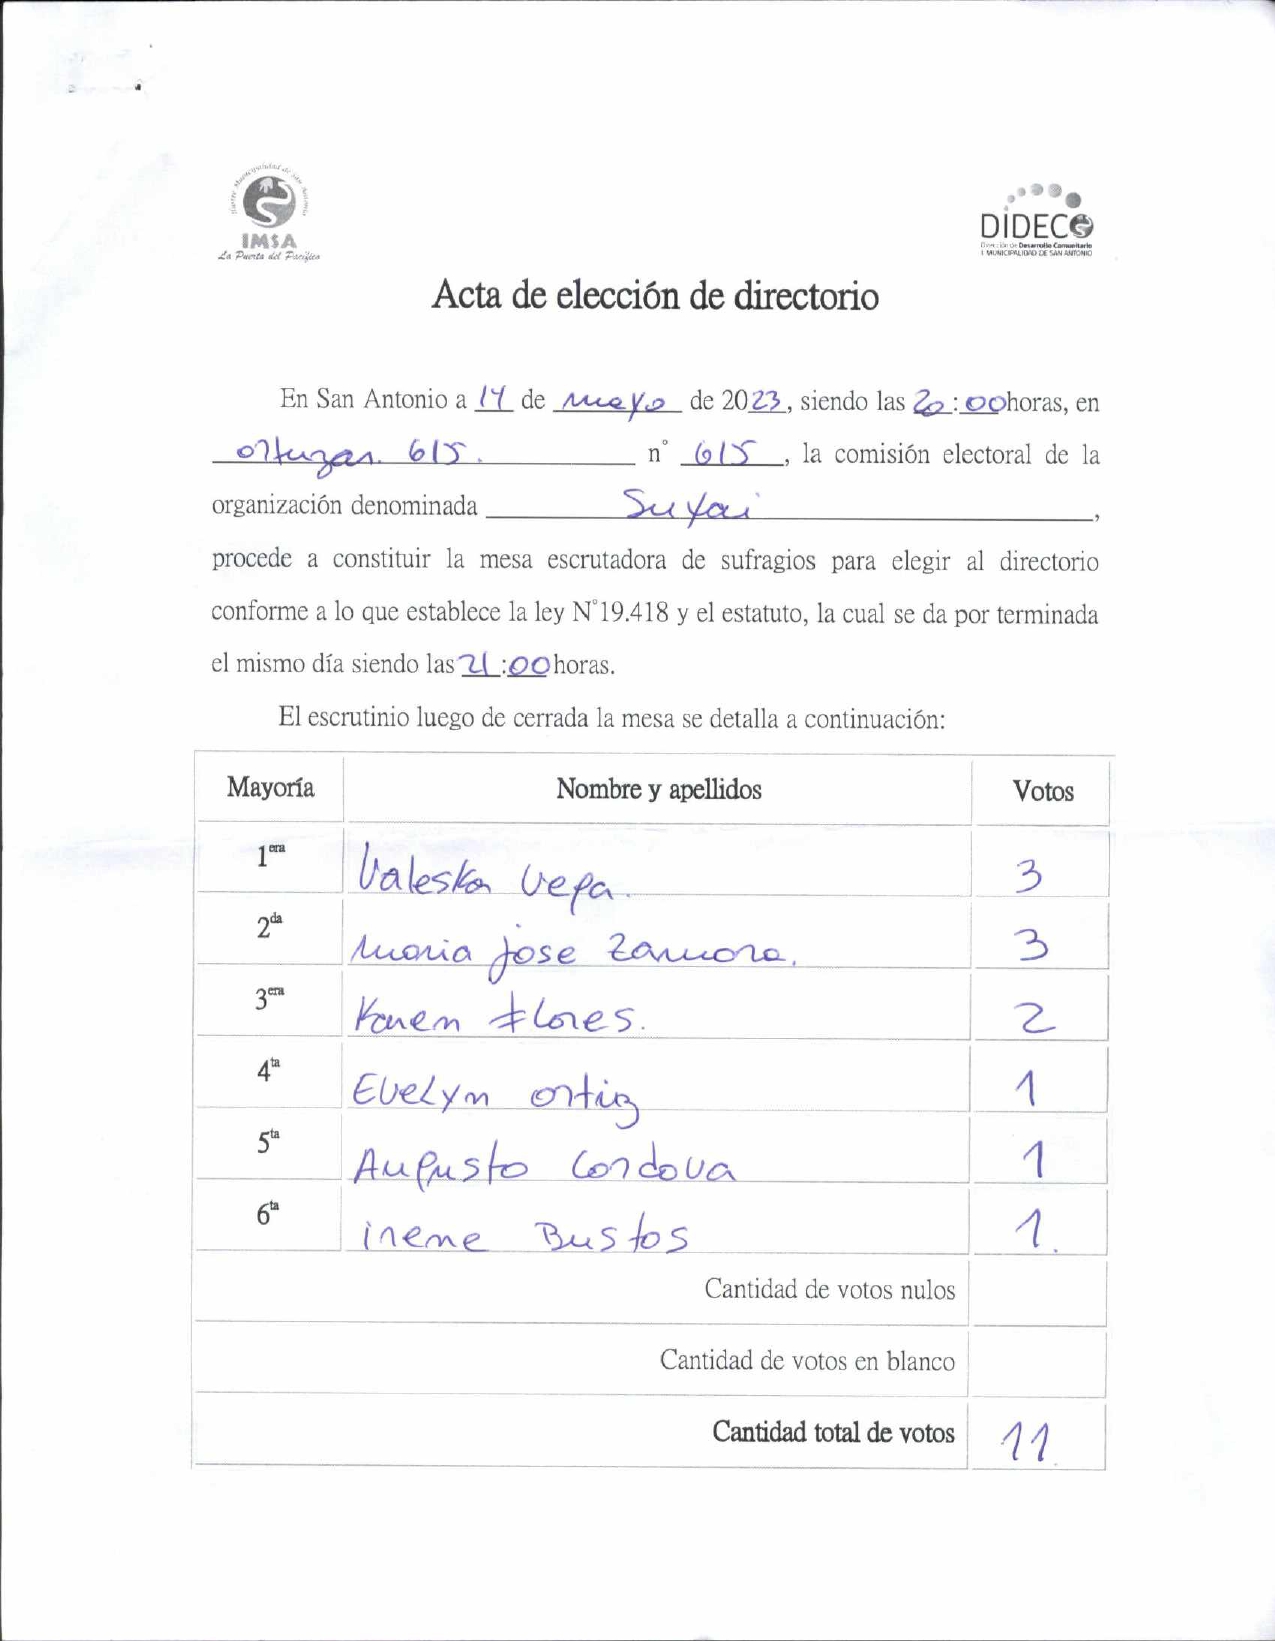 Ilustre Municipalidad de San Antonio
IMSA
La Puerta del Pacífico
DIDECO
Dirección de Desarrollo Comunitario
I. MUNICIPALIDAD DE SAN ANTONIO
Acta de elección de directorio
En San Antonio a 14 de mayo de 2023, siendo las 20:00horas, en
ortuzar. 615. n° 615, la comisión electoral de la
organización denominada Suyai,
procede a constituir la mesa escrutadora de sufragios para elegir al directorio
conforme a lo que establece la ley N°19.418 y el estatuto, la cual se da por terminada
el mismo día siendo las 21:00horas.
El escrutinio luego de cerrada la mesa se detalla a continuación:
Mayoría Nombre y apellidos Votos
1era Valeska Vega. 3
2da Maria jose Zamora. 3
3era Karem Flores. 2
4ta Evelyn ortiz 1
5ta Augusto Cordova 1
6ta irene Bustos 1.
Cantidad de votos nulos
Cantidad de votos en blanco
Cantidad total de votos 11.